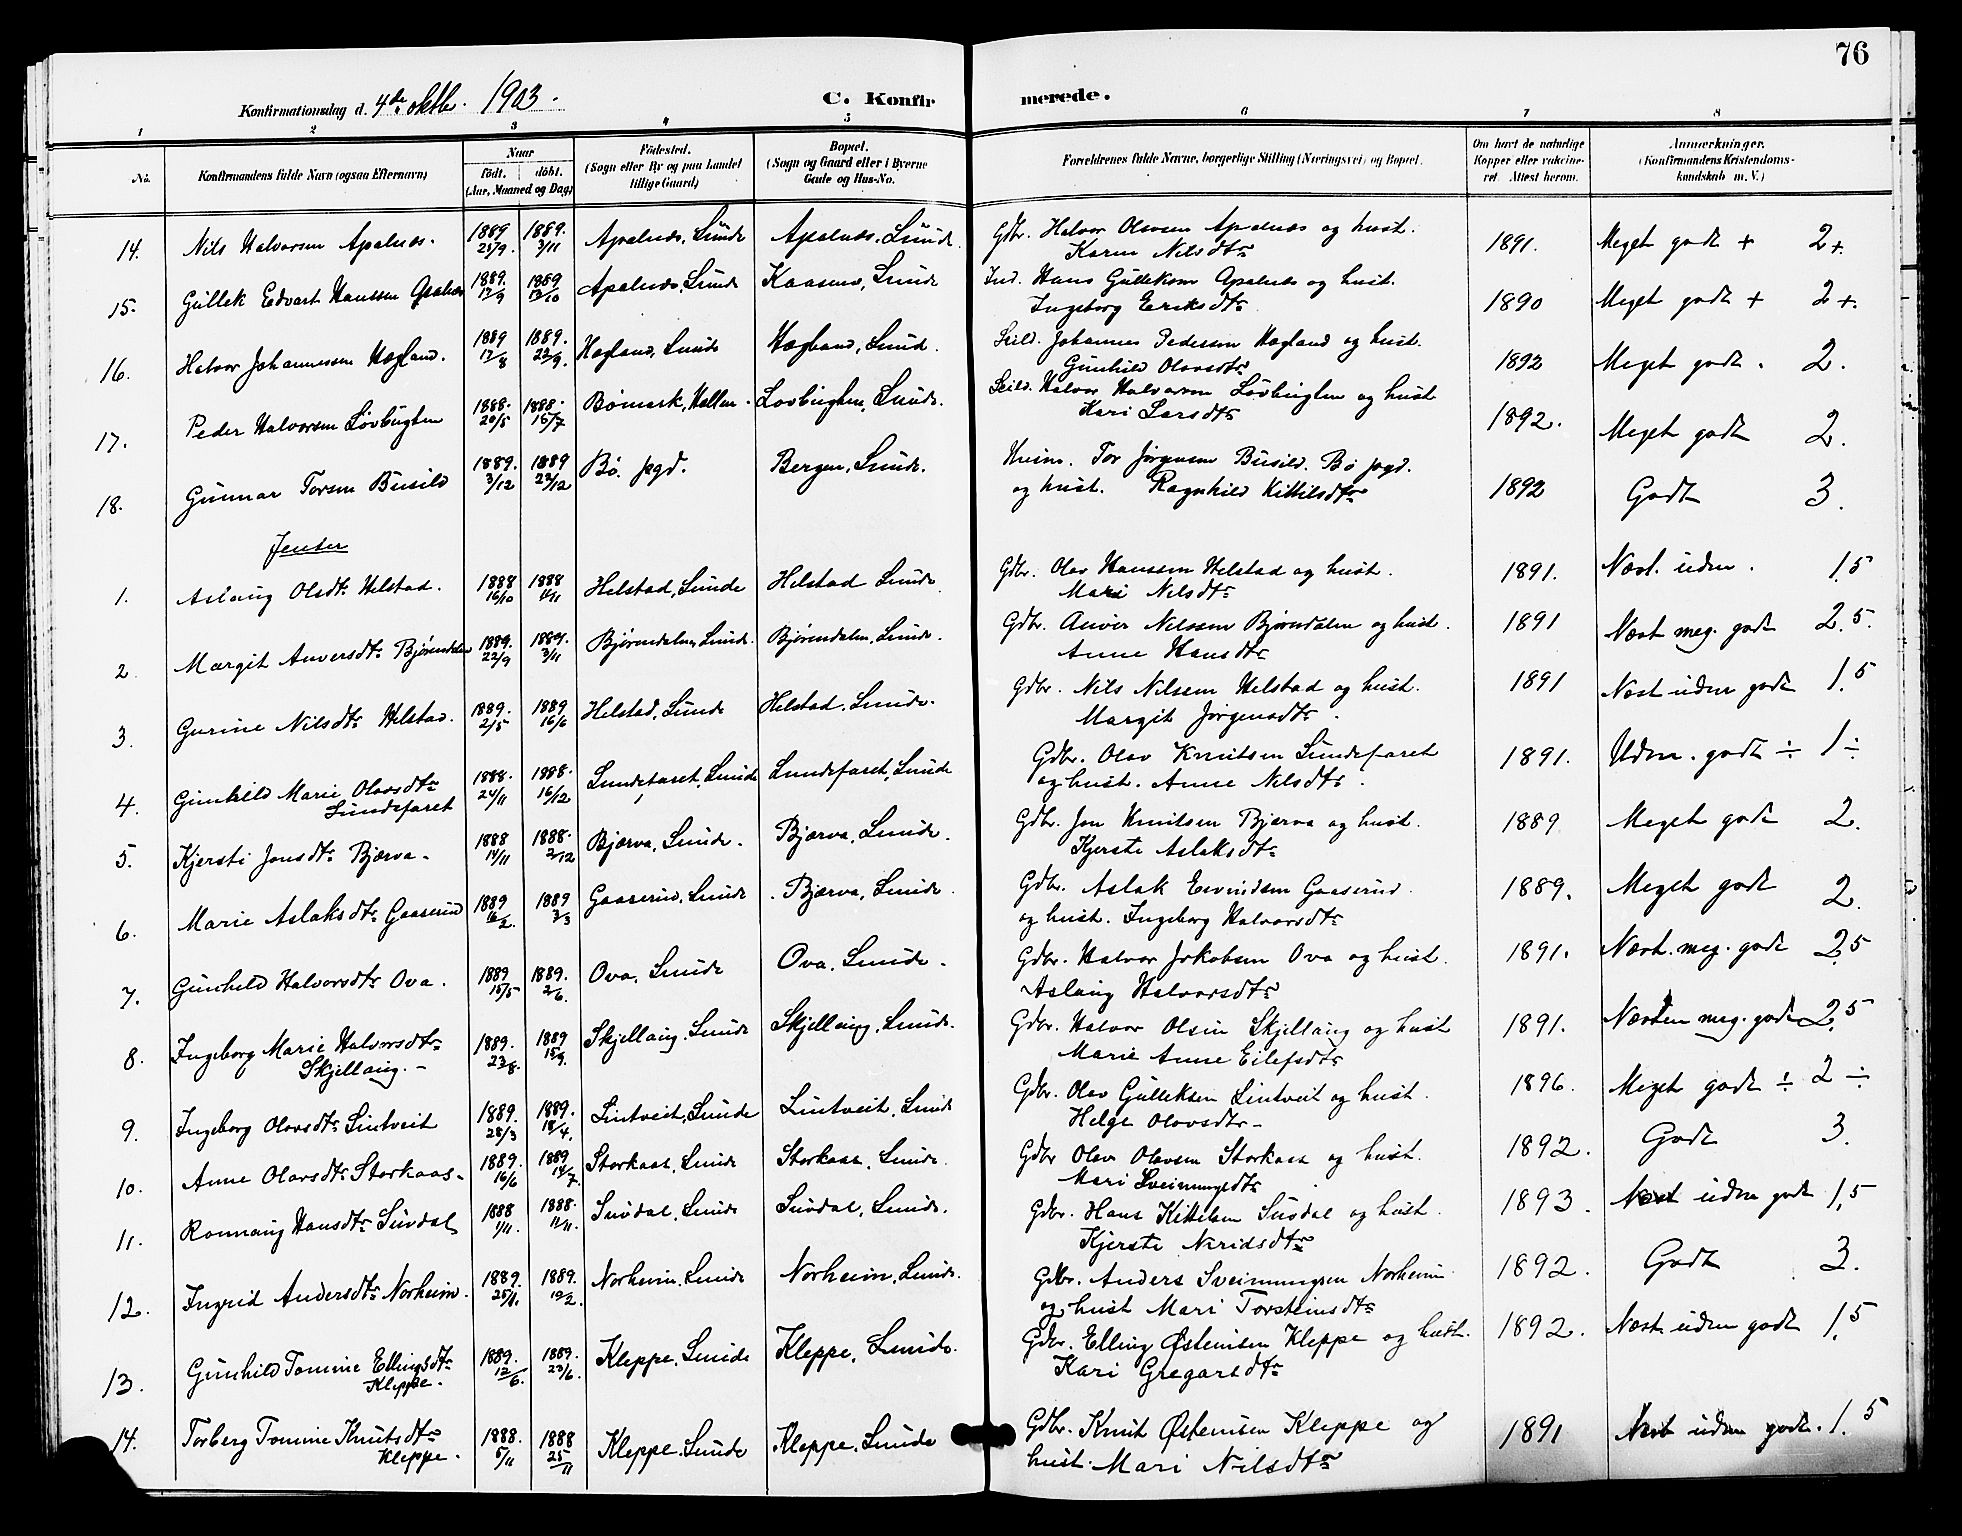 76
Konfirmationsdag d. 4de oktbr. 1903.
C. Konfirmerede.
1 2 3 4 5 6 7 8
No. Konfirmandens fulde Navn (ogsaa Efternavn) Naar født. døbt. (Aar, Maaned og Dag) Fødested. (Sogn eller By og paa Landet tillige Gaard) Bopæl. (Sogn og Gaard eller i Byerne Gade og Hus-No. Forældrenes fulde Navne, borgerlige Stilling (Næringsvei) og Bopæl. Om havt de naturlige Kopper eller vakcineret. Attest herom. Anmærkninger. (Konfirmandens Kristendomskundskab m. V.)
14. Nils Halvorsen Apalnæs. 1889 25/9. 1889. 3/11 Apalnæs, Lunde Apalnæs, Lunde. Gdbr. Halvor Olavsen Apalnæs og hust. Karen Nilsdtr 1891. Meget godt + 2+.
15. Gullek Edvart Hanssen Apalnæs 1889. 12/9 1889 13/10 Apalnæs, Lunde Kaasene, Lunde Ind. Hans Gulleksen Apalnæs og hust. Ingeborg Eriksdtr 1890 Meget godt + 2+.
16. Halvor Johannessen Hagland. 1889 12/8 1889. 22/9. Hagland, Lunde Hagland, Lunde. Seild. Johannes Pedersen Hagland og hust. Gunhild Olavsdtr 1892 Meget godt. 2.
17. Peder Halvorsen Løvbugten 1888. 20/5 1888. 15/7 Bømark, Hellen. Lovbugten, Lunde. Seild. Halvor Halvorsen Løvbugten og hust Kari Larsdtr 1892. Meget godt 2.
18. Gunnar Torsen Busild 1889. 3/12 1889 22/12 Bø. pgd. Bergen, Lunde. Husm. Tor Jørgensen Busild. Bø pgd. og hust. Ragnhild Kittilsdtr 1892 Godt 3.
Jenter
1. Aslaug Olsdtr Helstad. 1888 16/10 1888 4/11 Helstad, Lunde Helstad Lunde Gdbr. Olav Hanssen Helstad og hust. Mari Nilsdtr 1891. Næst. uden. 1.5
2. Margit Anversdtr Bjørendalen 1889. 22/9 1889. 3/11 Bjørendalen, Lunde. Bjørendalen, Lunde. Gdbr. Anver Nilssen Bjørndalen og hust. Anne Hansdtr 1891 Næst meg. godt 2.5.
3. Gurine Nilsdtr Helstad. 1889. 2/5 1889 16/6 Helstad, Lunde Helstad. Lunde. Gdbr. Nils Nilssen Helstad og hust. Margit Jørgensdtr. 1891 Næst uden godt 1.5
4. Gunhild Marie Olavsdtr Lundefaret 1888. 24/11 1888. 16/12 Lundefaret, Lunde Lundefaret, Lunde Gdbr. Olav Knutsen Lundefaret og hust. Anne Nilsdtr. 1891. Uden. godt ÷ 1 ÷
5. Kjersti Jonsdtr Bjærva. 1888 14/11 1888. 2/12 Bjærva, Lunde. Bjærva, Lunde. Gdbr. Jon Knutsen Bjærva og hust. Kjerste Aslaksdtr 1889 Meget godt 2.
6. Marie Aslaksdtr Gaaserud 1889 16/2. 1889 3/3 Gaaserud, Lunde. Bjærva, Lunde. Gdbr. Aslak Eivindsen Gaaserud. og hust. Ingeborg Halvorsdtr 1889. Meget godt 2.
7. Gunhild Halvorsdtr Ova. 1889 15/5 1889. 2/6. Ova, Lunde Ova, Lunde. Gdbr. Halvor Jakobsen Ova og hust. Aslaug Halvorsdtr 1891. Næst. meg. godt 2.5
8. Ingeborg Marie Halvorsdtr Skjellaug. 1889. 23/8. 1889 15/9. Skjellaug, Lunde Skjellaug, Lunde. Gdbr. Halvor Olsen Skjellaug og hust Marie Anne Eilefsdtr 1891. Næsten meg. godt 2.5
9. Ingeborg Olavsdtr Lintveit 1889. 28/3 1889. 18/4. Lintveit, Lunde Lintveit, Lunde Gdbr. Olav Gulleksen Lintveit og hust. Helge Olavsdtr. 1896. Meget godt ÷ 2 ÷
10. Anne Olavsdtr Storkaas. 1889. 16/6 1889 14/7. Storkaas, Lunde Storkaas, Lunde. Gdbr Olav Olavsen Storkaas og hust. Mari Sveinungsdtr. 1892. Godt 3.
11. Ronnaug Hansdtr Suvdal 1888 1/11. 1888. 11/11. Suvdal, Lunde Suvdal, Lunde. Gdbr. Hans Kittelsen Suvdal og hust. Kjerste Neridsdtr 1893. Næst uden godt 1.5
12. Ingrid Andersdtr Norheim. 1889. 25/1. 1889. 10/2. Norheim, Lunde Norheim, Lunde. Gdbr. Anders Sveinungsen Norheim og hust Mari Torsteinsdtr 1892. Godt 3.
13. Gunhild Tomine Ellingsdtr Kleppe. 1889. 12/6. 1889. 23/6. Kleppe, Lunde Kleppe, Lunde. Gdbr. Elling Østensen Kleppe og hust. Kari Gregarsdtr 1892. Næst. uden godt 1.5
14. Torberg Tomine Knutsdtr Kleppe. 1888. 5/11 1888 25/11 Kleppe, Lunde Kleppe, Lunde Gdbr. Knut Østensen Kleppe og hust. Mari Nilsdtr 1891 Næst uden godt. 1.5